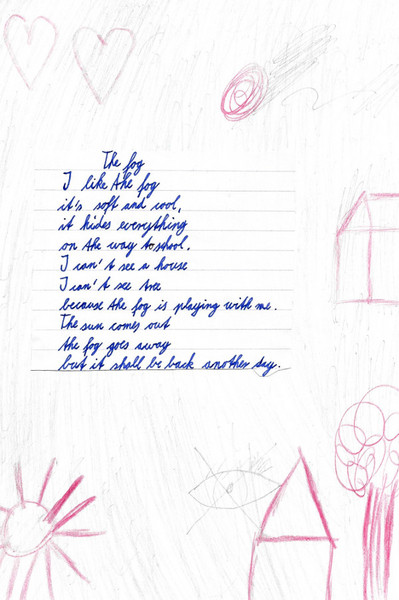 The fog
I like the fog
it's soft and cool,
it hides everything
on the way to school.
I can't see a house
I can't see tree
because the fog is playing with me.
The sun comes out
the fog goes away
but it shall be back another day.